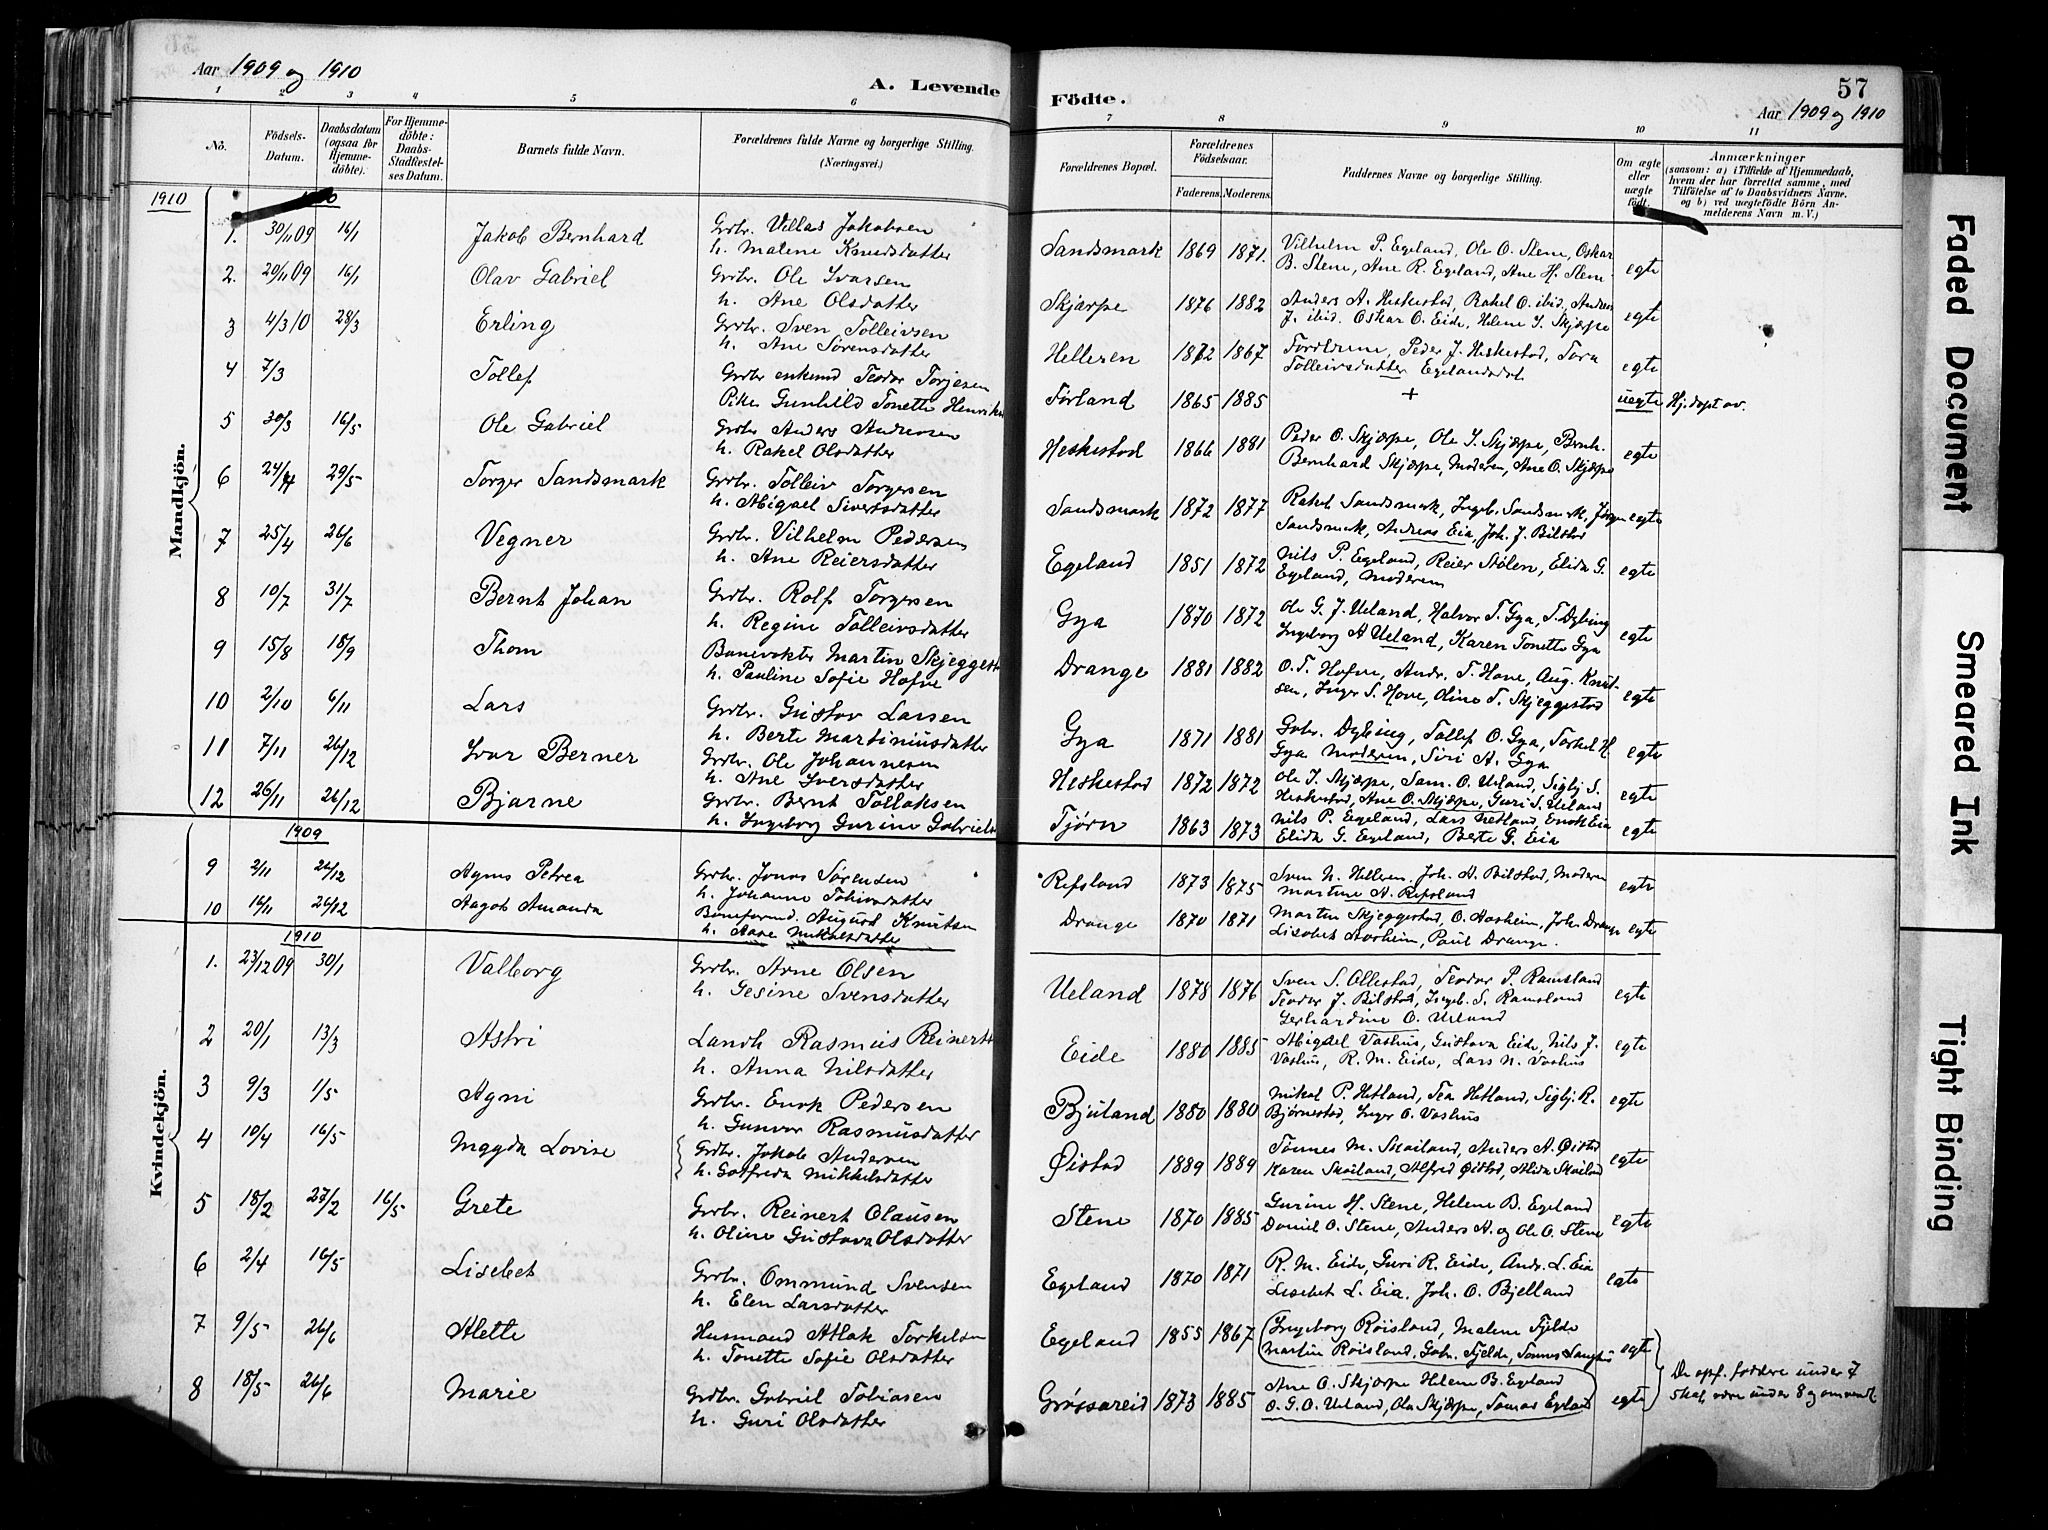 Aar 1909 og 1910
A. Levende Födte.
57
Aar 1909 og 1910
1 2 3 4 5 6 7 8 9 10 11
No. Födsels-Datum. Daabsdatum (ogsaa for Hjemmedöbte). For Hjemmedöbte: Daabs-Stadfæstelses Datum. Barnets fulde Navn. Forældrenes fulde Navne og borgerlige Stilling. (Næringsvei.) Forældrenes Bopæl. Forældrenes Födselsaar. Faderens. Moderens. Faddernes Navne og borgerlige Stilling. Om ægte eller uægte födt. Anmærkninger (saasom: a) i Tilfælde af Hjemmedaab, hvem der har forrettet samme, med Tilföielse af to Daabsvidners Navne, og b) ved uægtefödte Börn Anmelderens Navn m. V.)
Mandkjön.
1910
1. 30/11 09 16/1 Jakob Bernhard Grdbr. Villas Jakobsen
h. Malene Knudsdatter Sandsmark 1869 1871. Vilhelm P. Egeland, Ole O. Stene, Oskar
B. Stene, Ane R. Egeland, Ane H. Stene egte
2. 20/11 09 16/1 Olav Gabriel Grdbr. Ole Ivarsen
h. Ane Olsdatter Skjærpe 1876 1882 Anders A. Heskestad, Rakel O. ibid, Andreas
J. ibid. Oskar O. Eide, Helene I. Skjærpe egte
3 4/3 10 28/3 Erling Grdbr. Sven Tolleivsen
h. Ane Sørensdatter Helleren 1872 1867 Foreldrene, Peder J. Heskestad, Tora
Tolleivsdatter Egelandsdal egte
4 7/3 Tollef Grdbr enkemd Teodor Torjesen
Pike Gunhild Tonette Henriks Førland 1865 1885 + uegte Hj.døpt av.
5 30/3 16/5 Ole Gabriel Grdbr Anders Andersen
h. Rakel Olsdatter Heskestad 1866 1881 Peder O. Skjærpe, Ole I. Skjærpe, Bernh.
Bernhard Skjærpe, Moderen, Ane O. Skjærpe egte
6 24/4 29/5 Torger Sandsmark Grdbr. Tolleiv Torgersen
h. Abigael Sivertsdatter Sandsmark 1872 1877 Rakel Sandsmark, Ingeb. Sandsmark, Jørgen
Sandsmark, Andreas Eia, Joh. J. Bilstad egte
7 25/4 26/6 Vegner Grdbr. Vilhelm Pedersen
h. Ane Reiersdatter Egeland 1851 1872 Nils P. Egeland, Reier Stølen, Elida G.
Egeland, Moderen egte
8 10/7 31/7 Bernt Johan Grdbr. Rolf Torgersen
h. Regine Tolleivsdatter Gya 1870 1872 Ole G. J. Ueland, Halvor T. Gya, T. Dybing
Ingeborg A Ueland, Karen Tonette Gya egte
9 15/8 18/9 Thom Banevokter Martin Skjeggest
h. Pauline Sofie Hofve Drange 1881 1882 O. T. Hofve, Andr. T. Hove, Aug. Knut-
sen, Inger S. Hove, Oline T. Skjeggestad egte
10 2/10 6/11 Lars Grdbr. Gustav Larsen
h. Berte Martiniusdatter Gya 1871 1881 Gabr. Dybing, Tollef O. Gya, Torkel H.
Gya Moderen, Siri A. Gya egte
11 7/11 26/12 Ivar Berner Grdbr. Ole Johannesen
h. Ane Iversdatter Heskestad 1872 1872 Ole I. Skjærpe, Sam. O. Ueland, Sigbj S.
Heskestad, Ane O. Skjærpe, Guri S. Ueland egte
12 26/11 26/12 Bjarne Grdbr. Bernt Tollaksen
h. Ingeborg Gurine Gabriels Tjørn 1863 1873 Nils P. Egeland, Lars Netland, Enok Eia
Elida G. Egeland, Berte G. Eia egte
Kvindekjön.
1909
9 2/11 26/12 Agnes Petrea Grdbr. Jonas Sørensen
h. Johanne Tobiasdatter Refsland 1873 1875 Sven N. Helleren, Joh. A. Bilstad, Moderen
Martine A. Refsland egte
10 16/11 26/12 Aagot Amanda Baneformd. August Knutsen
h. Aase Mikalsdatter Drange 1870 1871 Martin Skjeggestad, O. Aasheim, Joh. Drange
Lisebet Aasheim, Paul Drange. egte
1910
1. 23/12 09 30/1 Valborg Grdbr. Arne Olsen
h. Gesine Svensdatter Ueland 1878 1876 Sven S. Ollestad, Teodor P. Ramsland
Teodor J. Bilstad, Ingeb. S. Ramsland
Gerhardine O. Ueland egte
2 20/1 13/3 Astri Landh Rasmus Reinerts
h. Anna Nilsdatter Eide 1880 1885 Abigael Vashus, Gustava Eide, Nils J.
Vashus, R. M. Eide, Lars N. Vashus egte
3 9/3 1/5 Agni Grdbr. Enok Pedersen
h. Gunvor Rasmusdatter Bjuland 1880 1880 Mikal P. Hetland, Tea Hetland, Sigbj. R.
Bjørnestad, Inger O. Vashus egte
4 10/4 16/5 Magda Lovise Grdbr. Jakob Andersen
h. Gotfreda Mikkelsdatter Øistad 1889 1889 Tønnes M. Skailand, Anders A. Øistad
Karen Skailand, Alfred Øistad, Alida Skailand egte
5 18/2 27/2 16/5 Grete Grdbr. Reinert Olausen
h. Oline Gustava Olsdatter Stene 1870 1885 Gurine H. Stene, Helene B. Egeland
Daniel O. Stene, Anders A. og Ole O. Stene egte
6 2/4 16/5 Lisebet Grdbr. Ommund Svensen
h. Elen Larsdatter Egeland 1870 1871 R. M. Eide, Guri R. Eide, Andr. L. Eia
Lisebet L. Eia, Joh. O. Bjelland egte
7 9/5 26/6 Alette Husmand Atlak Torkelsen
h. Tonette Sofie Olsdatter Egeland 1855 1867 Ingeborg Røisland, Malene Fjelde
Martin Røisland, Gabr. Fjelde, Tønnes egte
8 18/5 26/6 Marie Grdbr. Gabriel Tobiasen
h. Guri Olsdatter Grøssareid 1873 1885 Ane O. Skjærpe Helene B. Egeland
O. G. O. Ueland, Ole Skjærpe, Tomas Egeland egte De opf. faddere under 7
skal være under 8 og omvendt.
Faded Document
Smeared Ink
Tight Binding